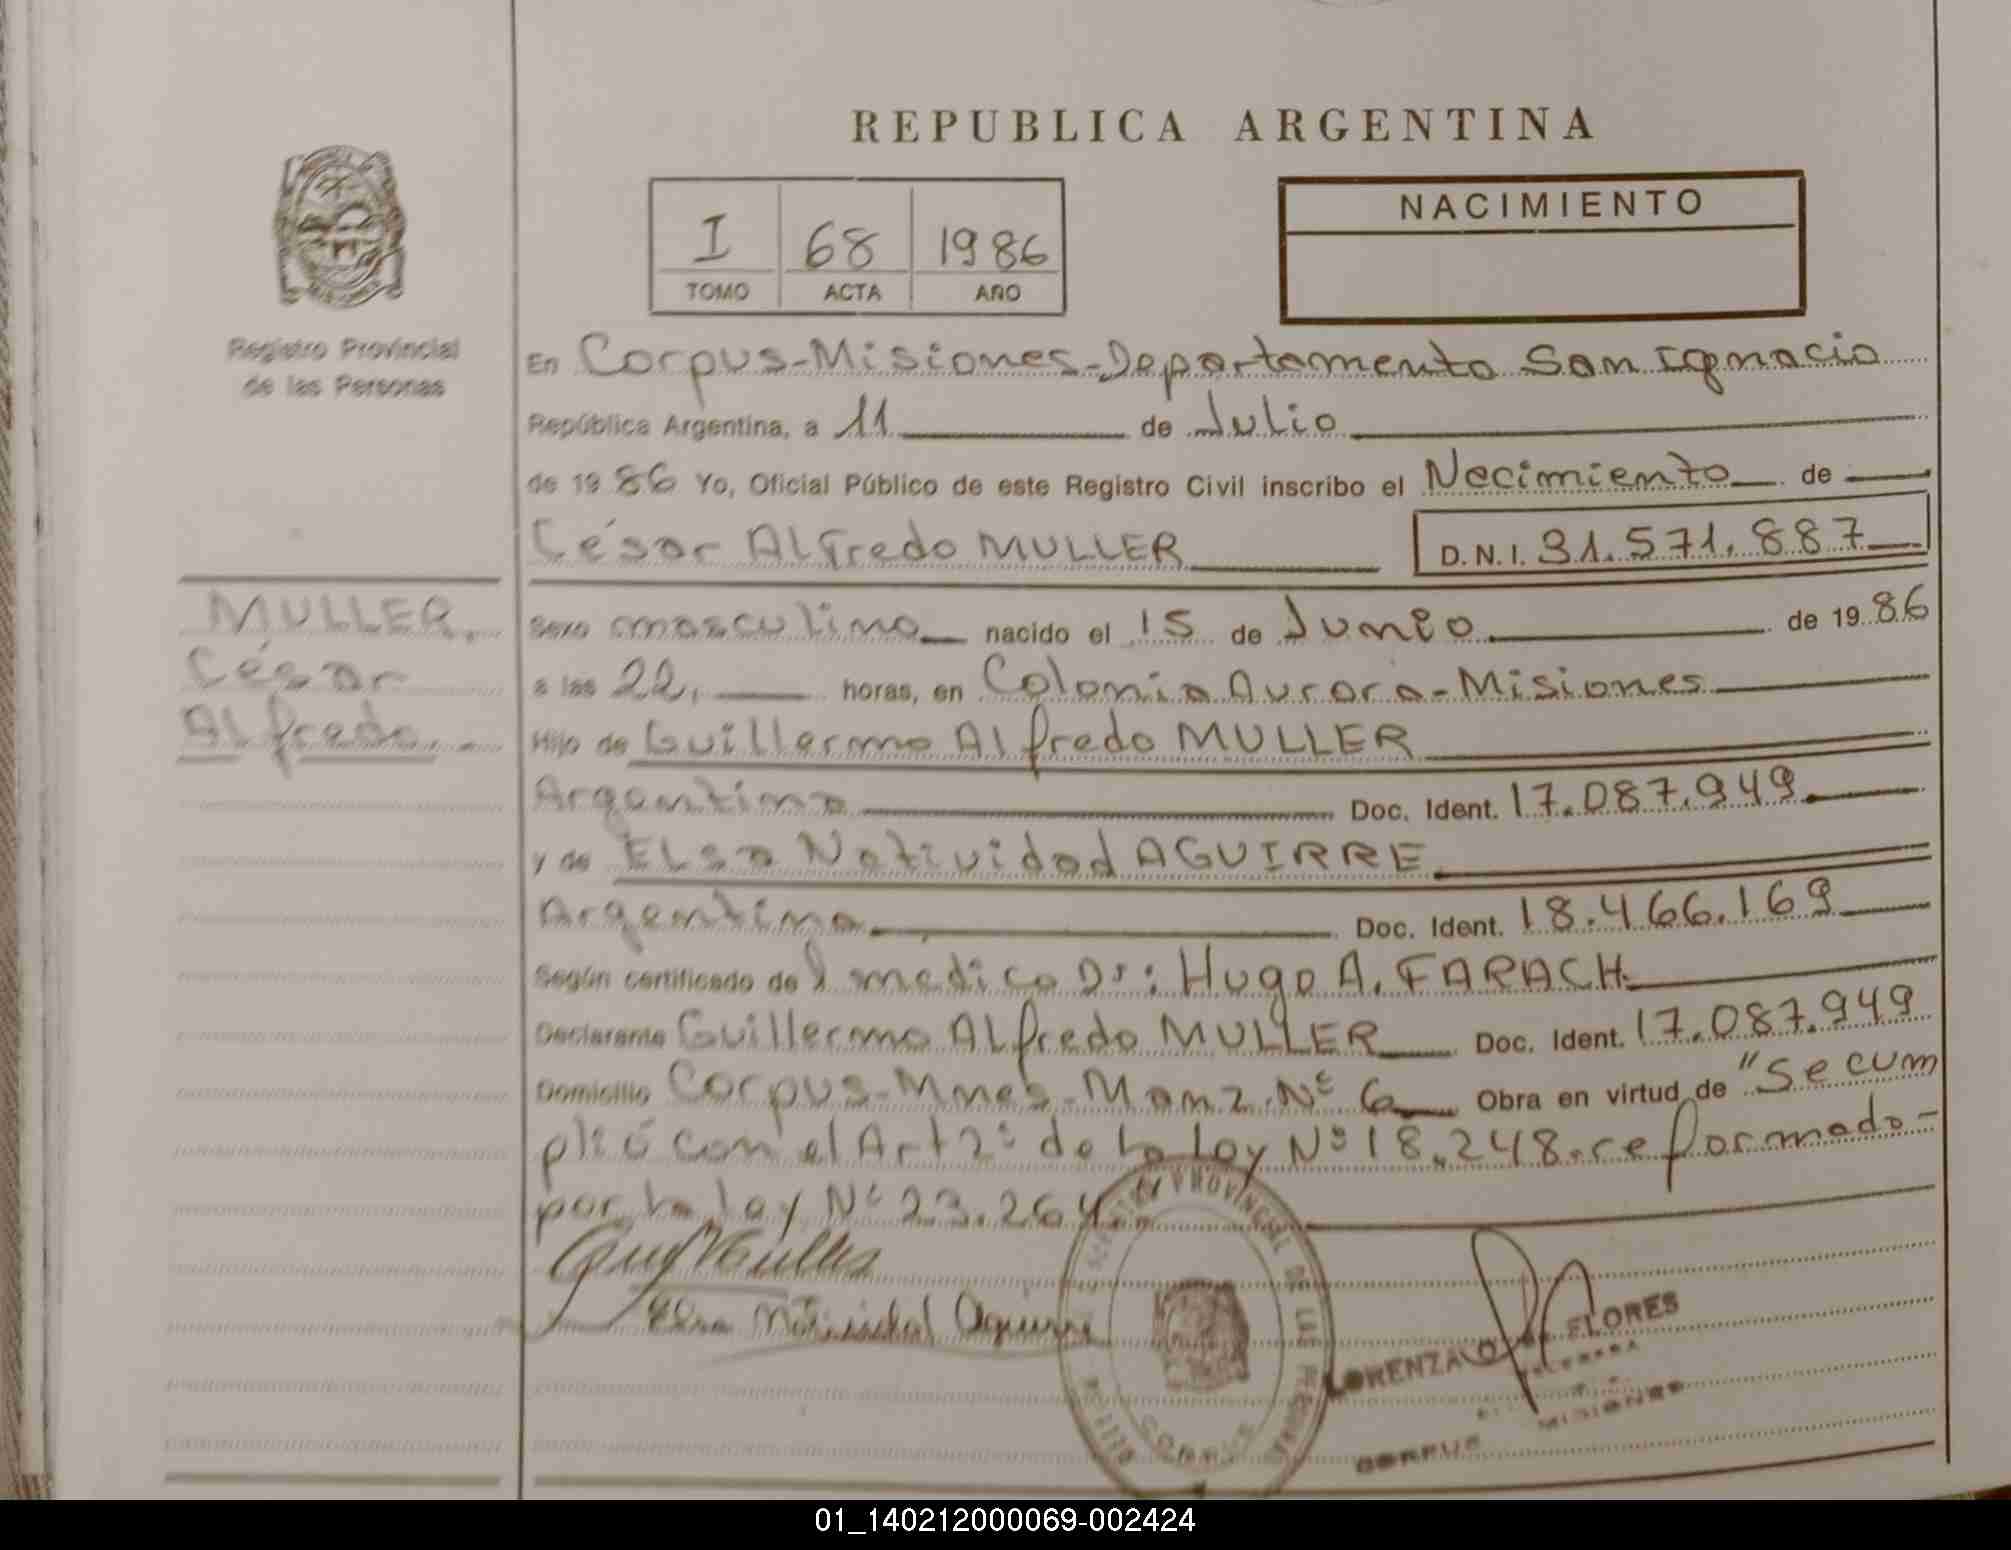 REPUBLICA ARGENTINA
I 68 1986
TOMO ACTA AÑO
NACIMIENTO
Registro Provincial
de las Personas
En Corpus-Misiones-Departamento San Ignacio
República Argentina, a 11 de Julio
de 1986 Yo, Oficial Público de este Registro Civil inscribo el Nacimiento de
César Alfredo MULLER D.N.I. 31.571.887
MULLER,
César
Alfredo.-
Sexo masculino nacido el 15 de Junio de 1986
a las 22, horas, en Colonia Aurora-Misiones
Hijo de Guillermo Alfredo MULLER
Argentino Doc. Ident. 17.087.949
y de Elsa Natividad AGUIRRE
Argentina Doc. Ident. 18.466.169
Según certificado del medico Dr: Hugo A. FARACH
Declarante Guillermo Alfredo MULLER Doc. Ident. 17.087.949
Domicilio Corpus-Mnes-Manz.Nº 6 Obra en virtud de "Se cum
plió con el Art 2º de la ley Nº 18.248.reformado-
por la ley Nº 23.264.
Elsa Natividad Aguirre
REGISTRO PROVINCIAL DE LAS PERSONAS
CORPUS
LORENZA FLORES
MISIONES
CORPUS
01_140212000069-002424